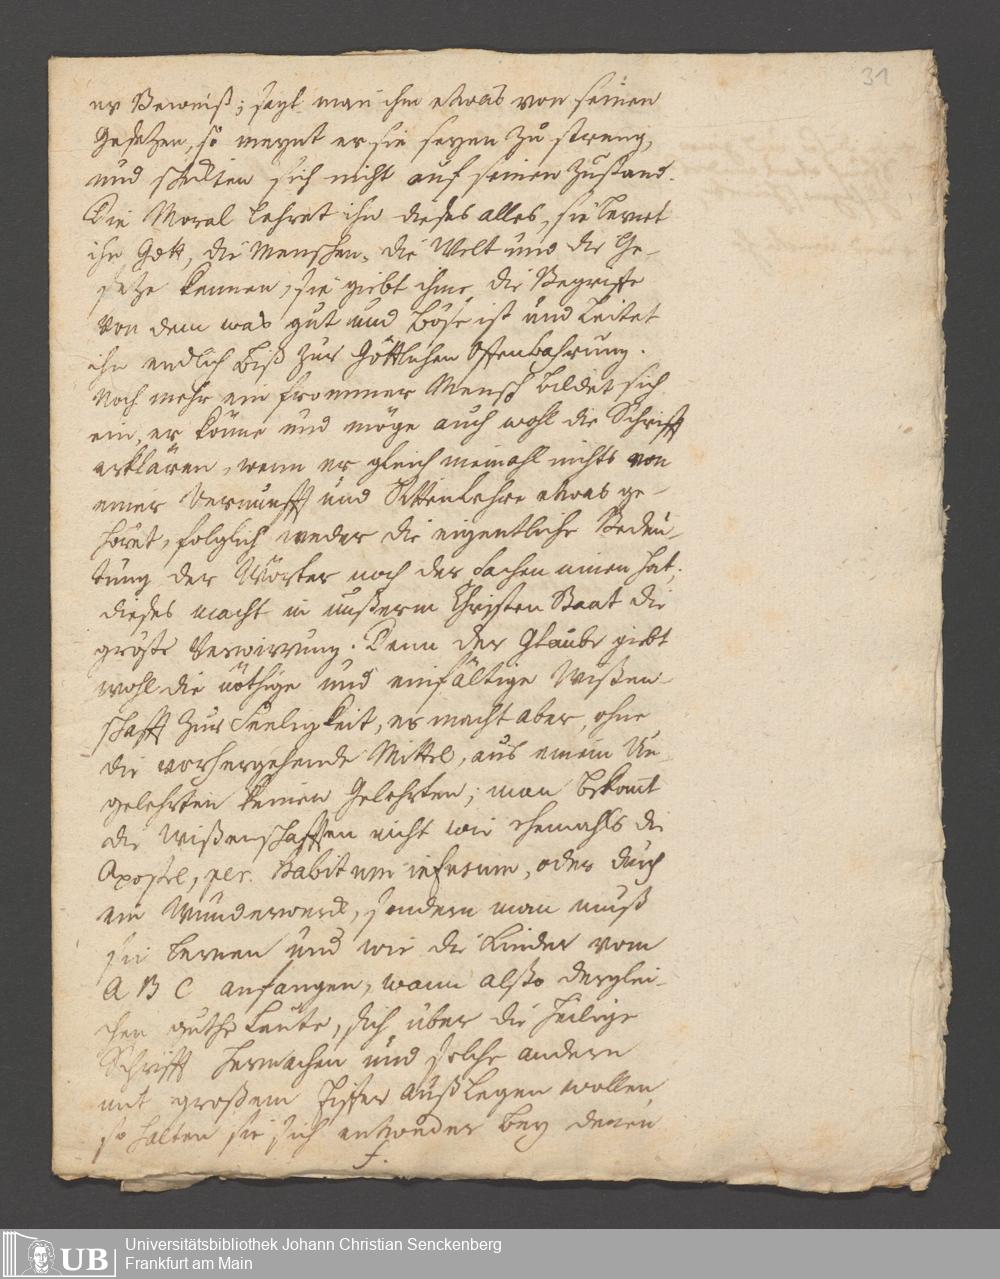 31
er Beweiß; sagt man ihm etwas von seinen
Gesetzen, so meynt er sie seyen zu streng,
und schickten sich nicht auf seinen Zustand.
Die Moral lehret ihn dieses alles, sie lernet
ihn Gott, die Menschen, die Welt und die Ge-
setze kennen, sie giebt ihme die Begriffe
von dem was gut und böse ist und leitet
ihn endlich biß zur Göttlichen Offenbahrung.
Noch mehr ein frommer Mensch bildet sich
ein, er könne und möge auch wohl die Schrifft
erklären, wenn er gleich niemahl nichts von
einer Vernunfft und Sittenlehre etwas ge-
höret, folglich weder die eigentliche Bedeu-
tung der Wörter noch der Sachen innen hat;
dieses macht in unßerm Christen Staat die
gröste Verwirrung. Denn der Glaube giebt
wohl die nöthige und einfältige Wißen-
schafft zur Seeligkeit, er macht aber, ohne
die vorhergehende Mittel, aus einem Un-
gelehrten keinen Gelehrten; man bekomt
die Wißenschafften nicht wie ehemahls die
Apostel, per habitum infusum, oder durch
ein Wunderwerck, sondern man muß
sie lernen und wie die Kinder vom
A B C anfangen, wann alßo derglei-
chen guthe Leute, sich über die heilige
Schrifft hermachen und solche andern
mit großem Eiffer außlegen wollen,
so halten sie sich entweder bey denen
f.
UB
Universitätsbibliothek Johann Christian Senckenberg
Frankfurt am Main